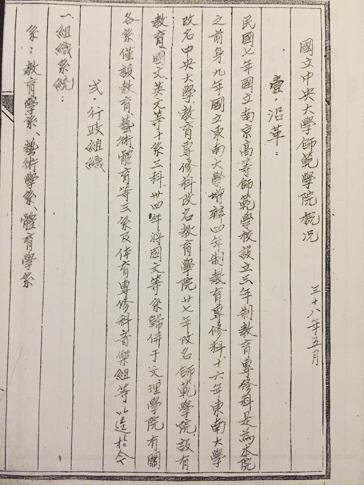 國立中央大學師範學院概況
三十八年五月
壹·沿革：
民國七年國立南京高等師範學校設立三年制教育專修科是為本院
之前身九年國立東南大學增辦四年制教育專修科十六年東南大學
改名中央大學教育專修科改名教育學院廿七年改名師範學院設有
教育國文英元等十系三科卅四年將國文等系歸併于文理學院有關
各系僅設教育藝術體育等三系及体育專修科音樂組等以迄於今
弍·行政組織
一、組織系統：
系：教育學系、藝術學系、體育學系